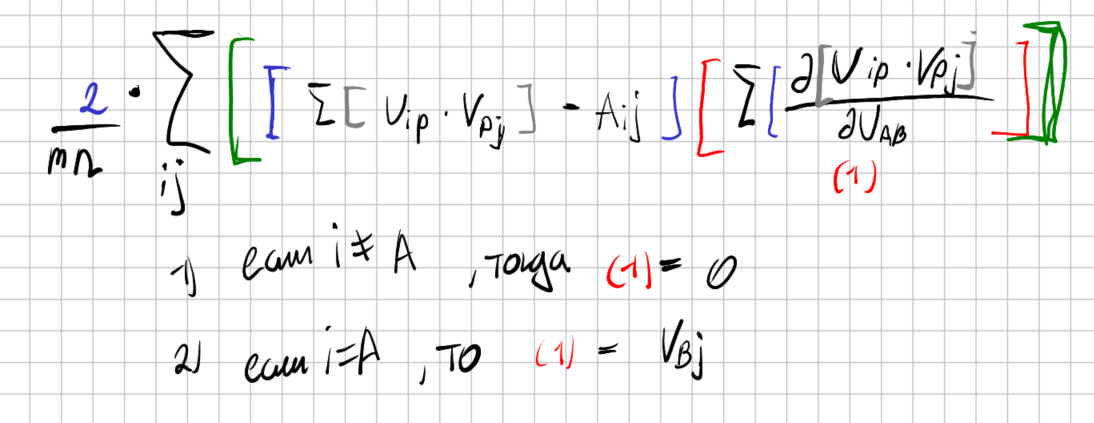 2/mn · Σ_ij [ [ Σ [ U_ip · V_pj ] - A_ij ] [ Σ [ ∂[U_ip · V_pj] / ∂U_AB ] ] ]
(1)
1) если i ≠ A , тогда (1) = 0
2) если i=A , то (1) = V_Bj